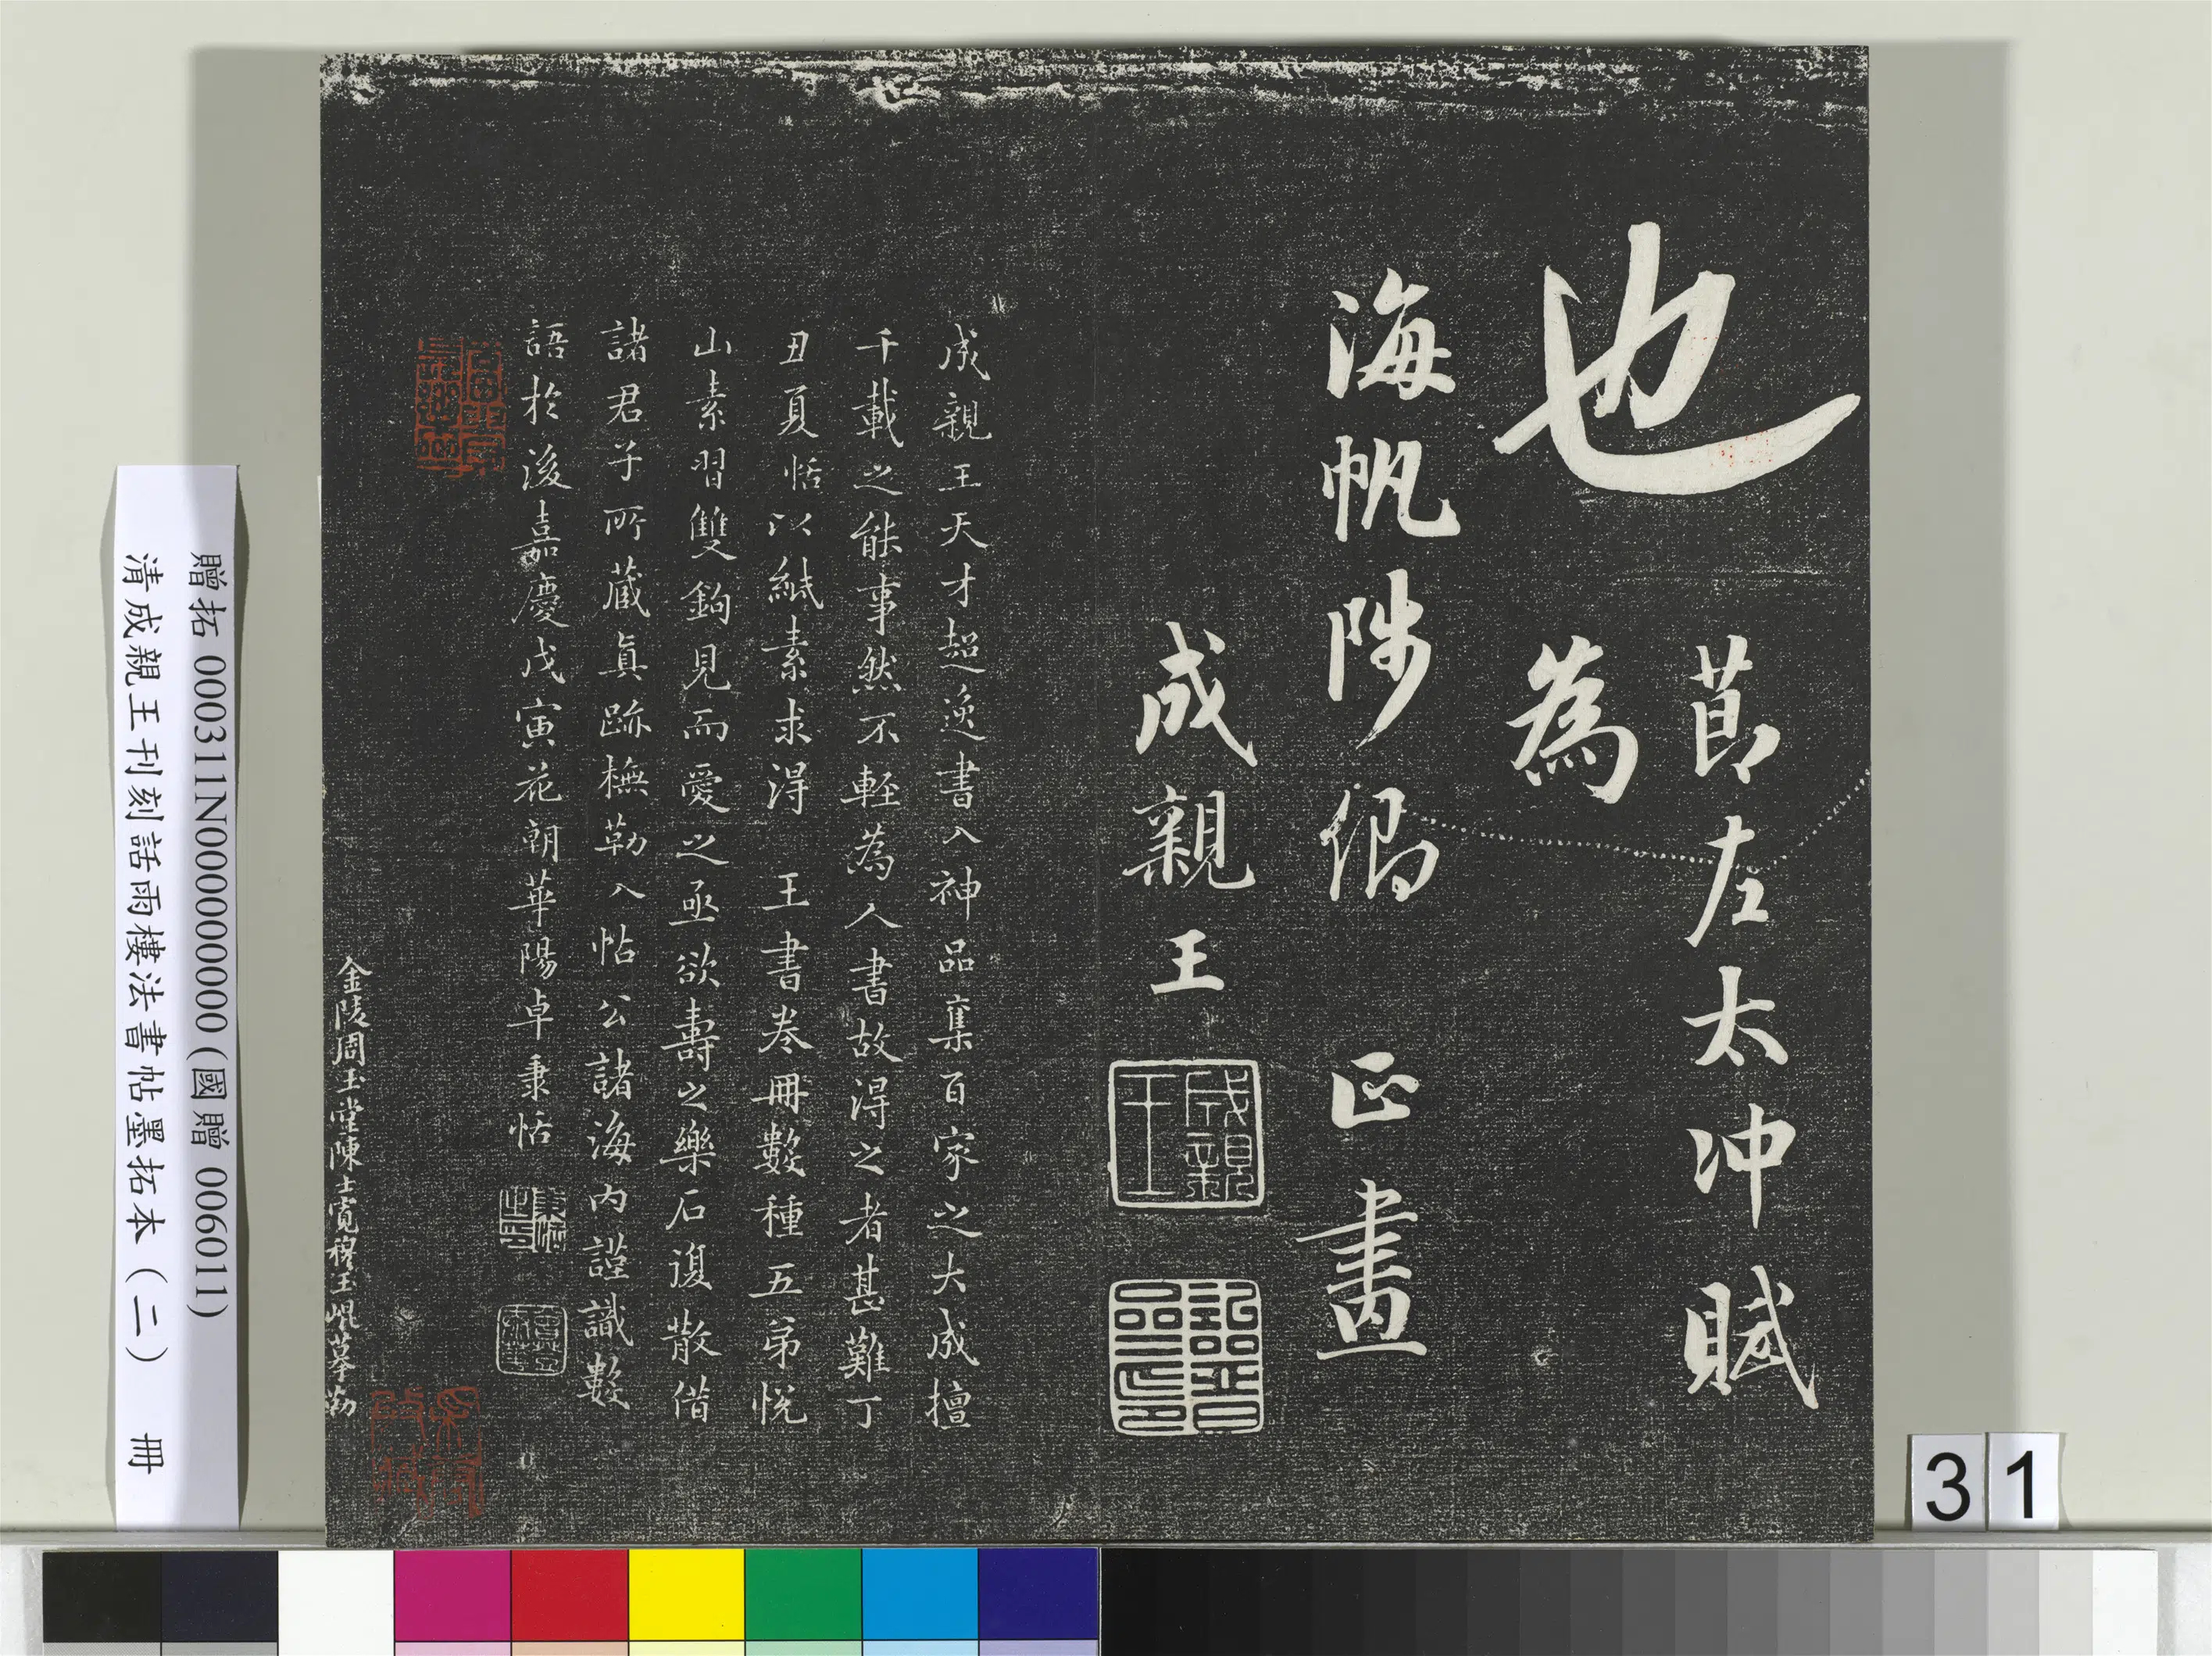 也
節左太冲賦
為
海帆陟偈 正畫
成親王
成親王
詒晉齋印
成親王天才超逸書入神品集百家之大成擅
千載之能事然不輕為人書故得之者甚難丁
丑夏恬以紙素求得 王書卷冊數種五弟悅
山素習雙鉤見而愛之亟欲壽之樂石復散借
諸君子所藏真跡橅勒入帖公諸海内謹識數
語於後嘉慶戊寅花朝華陽卓秉恬
秉恬之印
金陵周玉堂陳士寬穆玉崐摹勒
贈拓 000311N000000000 (國贈 006011)
清成親王刊刻話雨樓法書帖墨拓本 (二) 冊
31